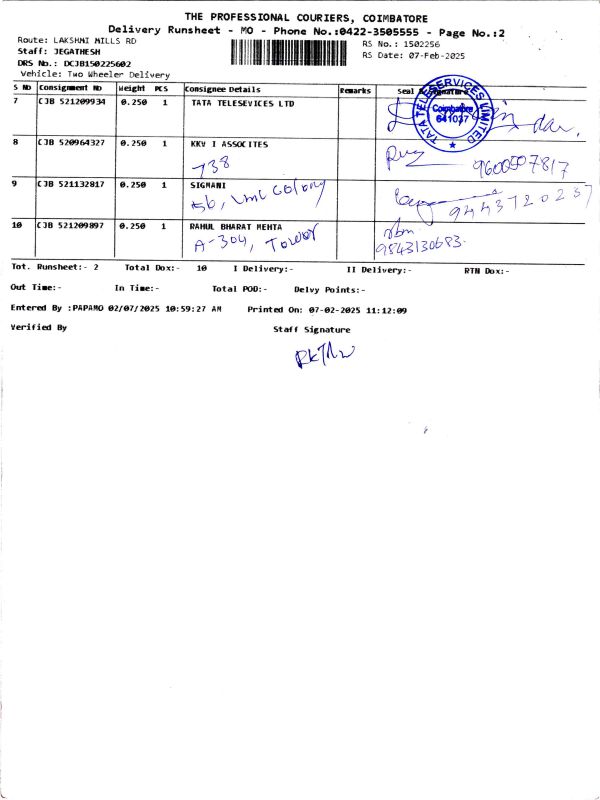 THE PROFESSIONAL COURIERS, COIMBATORE
Delivery Runsheet - MO - Phone No.:0422-3505555 - Page No.:2
Route: LAKSHMI MILLS RD
RS No.: 1502256
Staff: JEGATHESH
RS Date: 07-Feb-2025
DRS No.: DCJB150225602
Vehicle: Two Wheeler Delivery
S No Consignment No Weight PCS Consignee Details Remarks Seal & Signature
7 CJB 521209934 0.250 1 TATA TELESEVICES LTD
TATA TELESERVICES LIMITED
Coimbatore
641037
8 CJB 520964327 0.250 1 KKV I ASSOCITES
738
9600507817
9 CJB 521132817 0.250 1 SIGMANI
56, Colony
9443720237
10 CJB 521209897 0.250 1 RAHUL BHARAT MEHTA
A-304, Tower
rbm
9843130683
Tot. Runsheet:- 2 Total Dox:- 10 I Delivery:- II Delivery:- RTN Dox:-
Out Time:- In Time:- Total POD:- Delvy Points:-
Entered By :PAPAMO 02/07/2025 10:59:27 AM Printed On: 07-02-2025 11:12:09
Verified By Staff Signature